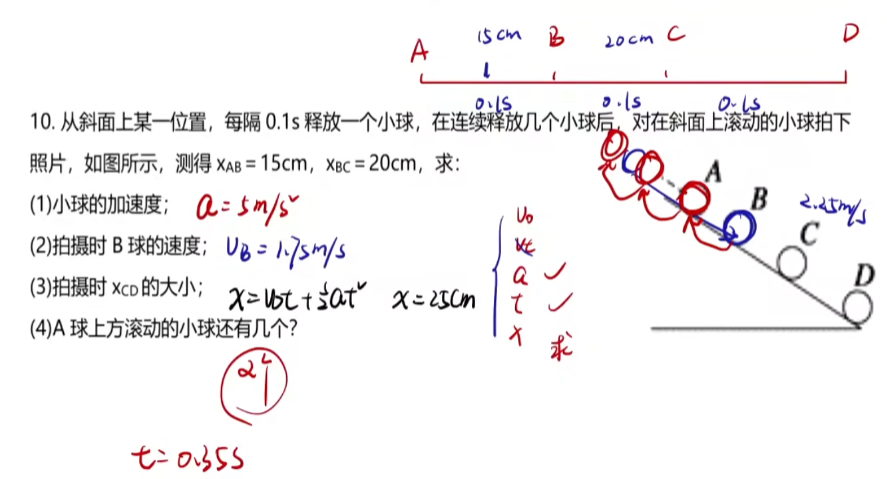 15cm
20cm
A B C D
0.1s 0.1s 0.1s
10. 从斜面上某一位置，每隔 0.1s 释放一个小球，在连续释放几个小球后，对在斜面上滚动的小球拍下
照片，如图所示，测得 xAB = 15cm，xBC = 20cm，求：
(1)小球的加速度； a = 5m/s²
(2)拍摄时 B 球的速度； υB = 1.75m/s
(3)拍摄时 xCD 的大小； x = υ₀t + ½at² x = 25cm
(4)A 球上方滚动的小球还有几个?
2个
t = 0.35s
υ₀
υt
a ✓
t ✓
x 求
A
B 2.25m/s
C
D